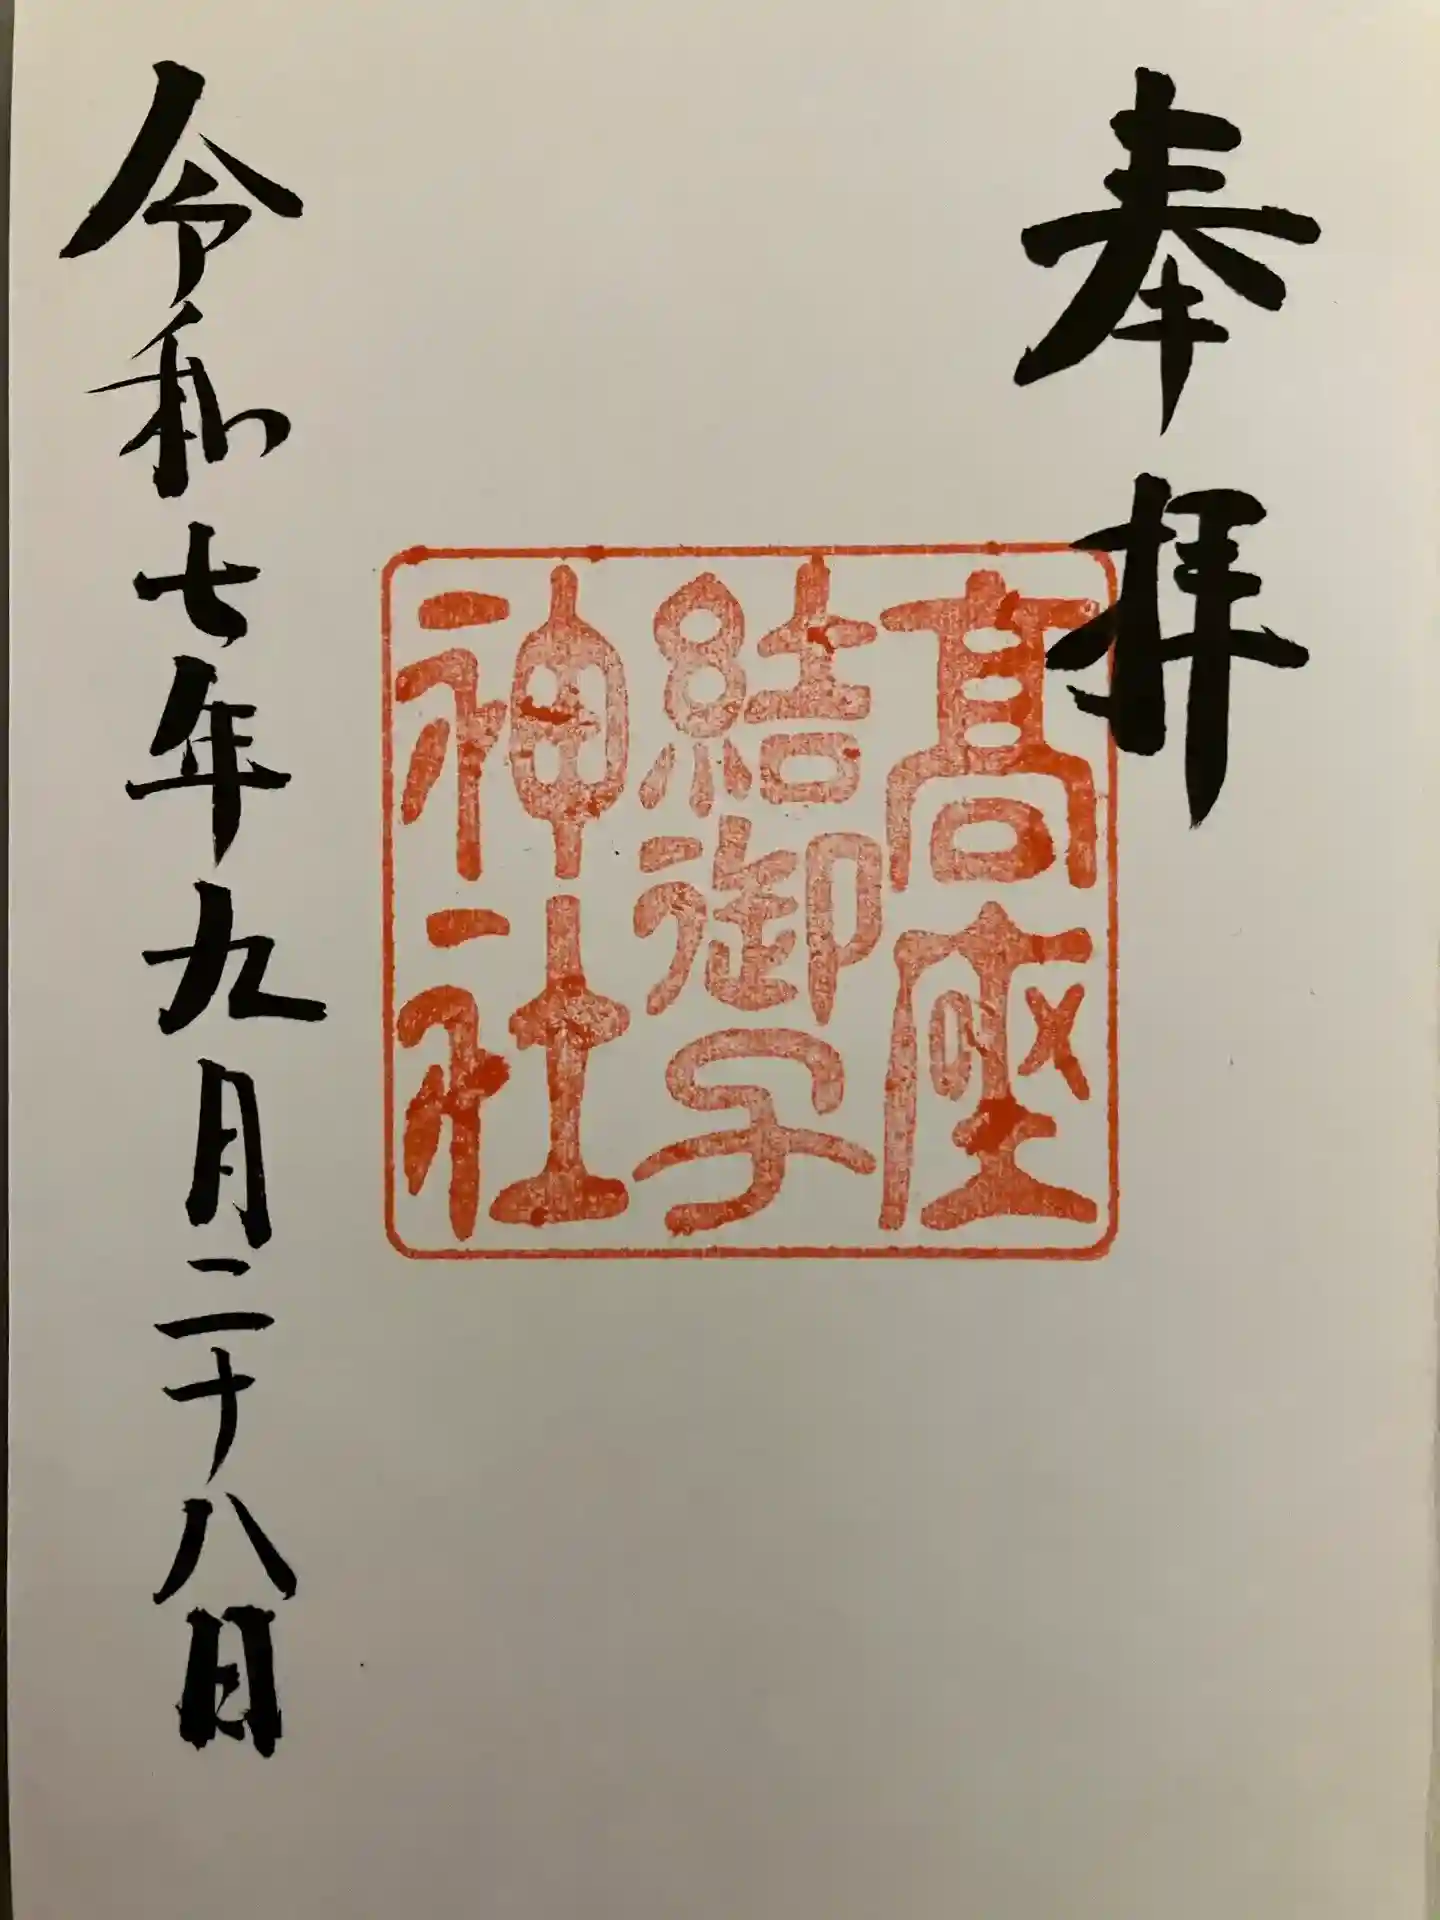 奉拝
髙座
結御子
神社
令和七年九月二十八日